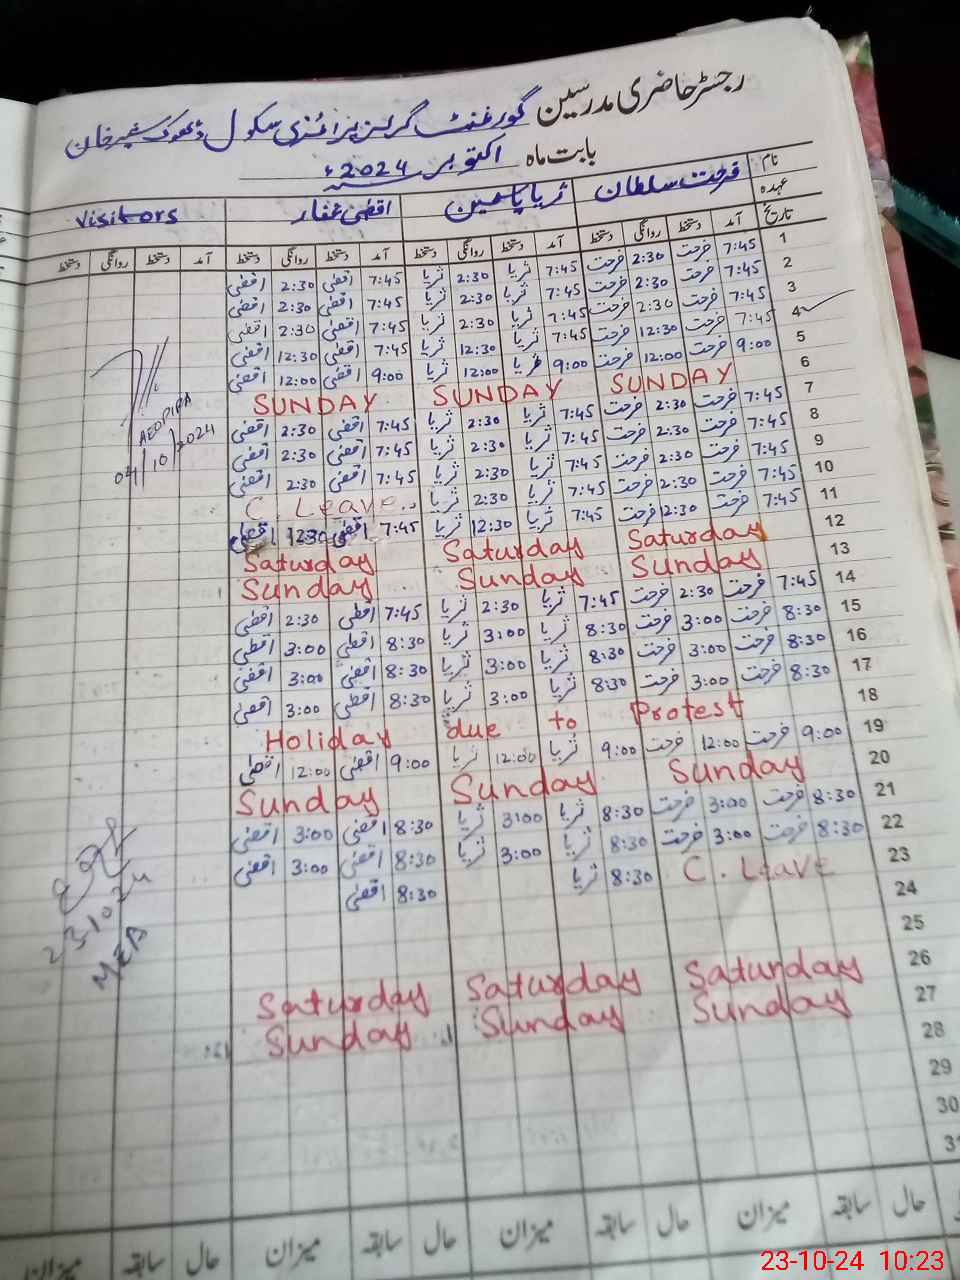 رجسٹر حاضری مدرسین گورنمنٹ گرلز پرائمری سکول ڈھوک شیر خان
بابت ماہ اکتوبر 2024ء
نام فرحت سلطان ثریا یاسمین اقصٰی غفار Visitors
عہدہ
تاریخ آمد دستخط روانگی دستخط آمد دستخط روانگی دستخط آمد دستخط روانگی دستخط آمد دستخط روانگی دستخط
1 7:45 فرحت 2:30 فرحت 7:45 ثریا 2:30 ثریا 7:45 اقصٰی 2:30 اقصٰی
2 7:45 فرحت 2:30 فرحت 7:45 ثریا 2:30 ثریا 7:45 اقصٰی 2:30 اقصٰی
3 7:45 فرحت 2:30 فرحت 7:45 ثریا 2:30 ثریا 7:45 اقصٰی 2:30 اقصٰی
4 7:45 فرحت 12:30 فرحت 7:45 ثریا 12:30 ثریا 7:45 اقصٰی 12:30 اقصٰی
5 9:00 فرحت 12:00 فرحت 9:00 ثریا 12:00 ثریا 9:00 اقصٰی 12:00 اقصٰی
6 SUNDAY SUNDAY SUNDAY
7 7:45 فرحت 2:30 فرحت 7:45 ثریا 2:30 ثریا 7:45 اقصٰی 2:30 اقصٰی
AEOPIPA
8 7:45 فرحت 2:30 فرحت 7:45 ثریا 2:30 ثریا 7:45 اقصٰی 2:30 اقصٰی
04/10/2024
9 7:45 فرحت 2:30 فرحت 7:45 ثریا 2:30 ثریا 7:45 اقصٰی 2:30 اقصٰی
10 7:45 فرحت 2:30 فرحت 7:45 ثریا 2:30 ثریا C. Leave
11 7:45 فرحت 12:30 فرحت 7:45 ثریا 12:30 ثریا 7:45 اقصٰی 12:30 اقصٰی
12 Saturday Saturday Saturday
13 Sunday Sunday Sunday
14 7:45 فرحت 2:30 فرحت 7:45 ثریا 2:30 ثریا 7:45 اقصٰی 2:30 اقصٰی
15 8:30 فرحت 3:00 فرحت 8:30 ثریا 3:00 ثریا 8:30 اقصٰی 3:00 اقصٰی
16 8:30 فرحت 3:00 فرحت 8:30 ثریا 3:00 ثریا 8:30 اقصٰی 3:00 اقصٰی
17 8:30 فرحت 3:00 فرحت 8:30 ثریا 3:00 ثریا 8:30 اقصٰی 3:00 اقصٰی
18 Holiday due to Protest
19 9:00 فرحت 12:00 فرحت 9:00 ثریا 12:00 ثریا 9:00 اقصٰی 12:00 اقصٰی
20 Sunday Sunday Sunday
21 8:30 فرحت 3:00 فرحت 8:30 ثریا 3:00 ثریا 8:30 اقصٰی 3:00 اقصٰی
22 8:30 فرحت 3:00 فرحت 8:30 ثریا 3:00 ثریا 8:30 اقصٰی 3:00 اقصٰی
23 C. Leave 8:30 ثریا 8:30 اقصٰی
23.10.24
MEA
24
25
26 Saturday Saturday Saturday
27 Sunday Sunday Sunday
28
29
30
31
حال سابقہ میزان حال سابقہ میزان حال سابقہ میزان حال سابقہ میزان
23-10-24 10:23